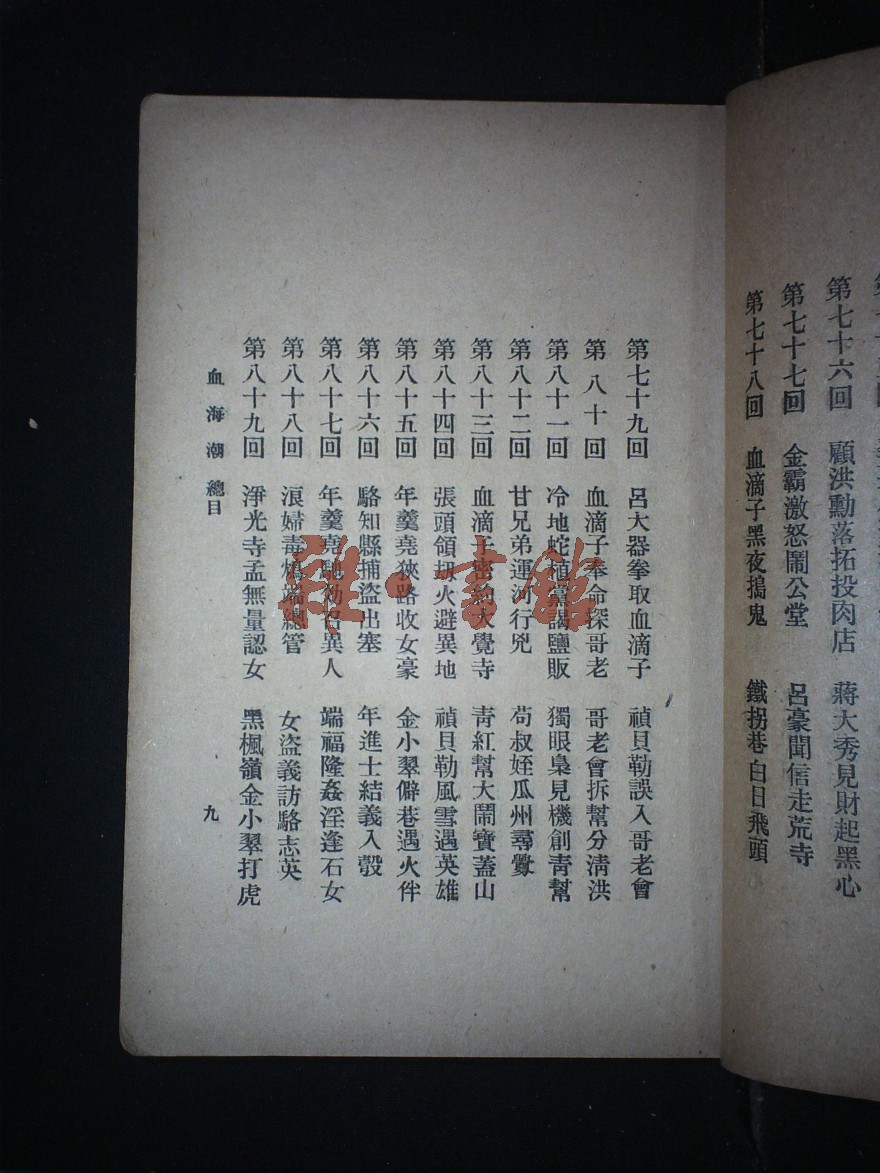 第七十六回　顧洪勳落拓投肉店　蔣大秀見財起黑心
第七十七回　金霸激怒鬧公堂　呂豪聞信走荒寺
第七十八回　血滴子黑夜搗鬼　鐵拐巷白日飛頭
第七十九回　呂大器拳取血滴子　禎貝勒誤入哥老會
第八十回　血滴子奉命探哥老　哥老會拆幫分淸洪
第八十一回　冷地蛇植黨鹽販　獨眼梟見機創靑幫
第八十二回　甘兄弟運河行兇　苟叔姪瓜州尋釁
第八十三回　血滴子密大覺寺　靑紅幫大鬧寶蓋山
第八十四回　張頭領火避異地　禎貝勒風雪遇英雄
第八十五回　年羹堯狹路收女豪　金小翠僻巷遇火伴
第八十六回　駱知縣捕盜出塞　年進士結義入彀
第八十七回　年羹堯馳召異人　端福隆姦淫逢石女
第八十八回　浪婦毒端總管　女盜義訪駱志英
第八十九回　淨光寺孟無量認女　黑楓嶺金小翠打虎
血海潮　總目　九
雜·書館